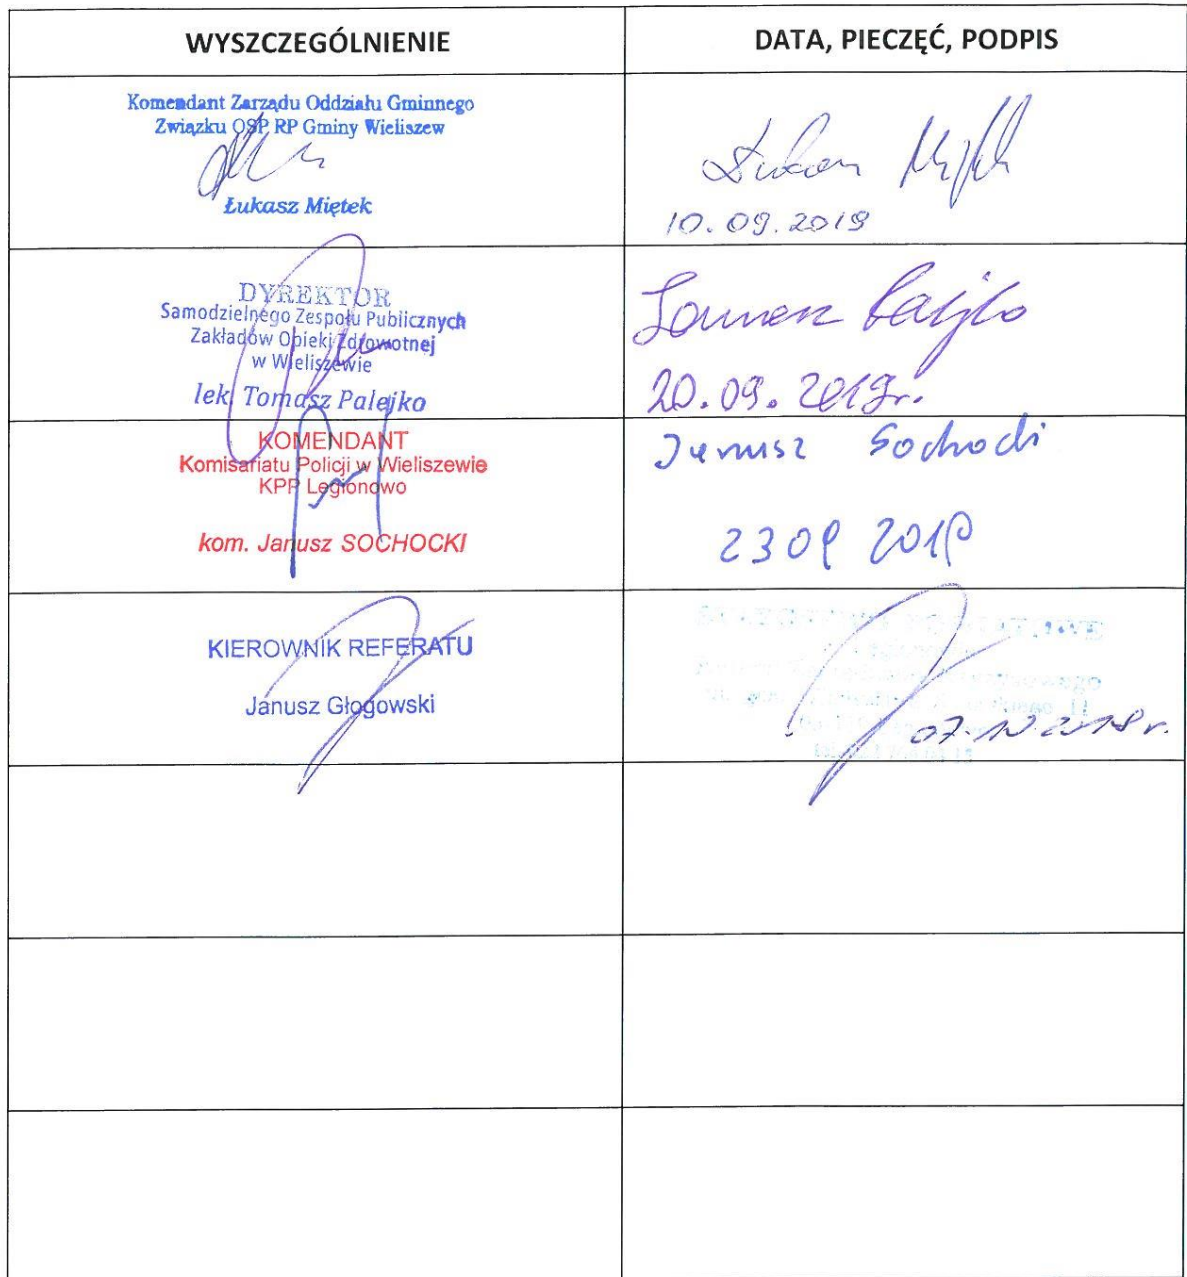 WYSZCZEGÓLNIENIE
DATA, PIECZĘĆ, PODPIS
Komendant Zarządu Oddziału Gminnego
Związku OSP RP Gminy Wieliszew
Łukasz Miętek
10.09.2019
DYREKTOR
Samodzielnego Zespołu Publicznych
Zakładów Opieki Zdrowotnej
w Wieliszewie
lek. Tomasz Palejko
Tomasz Palejko
20.09.2019r.
KOMENDANT
Komisariatu Policji w Wieliszewie
KPP Legionowo
kom. Janusz SOCHOCKI
Janusz Sochocki
23 09 2019
KIEROWNIK REFERATU
Janusz Głogowski